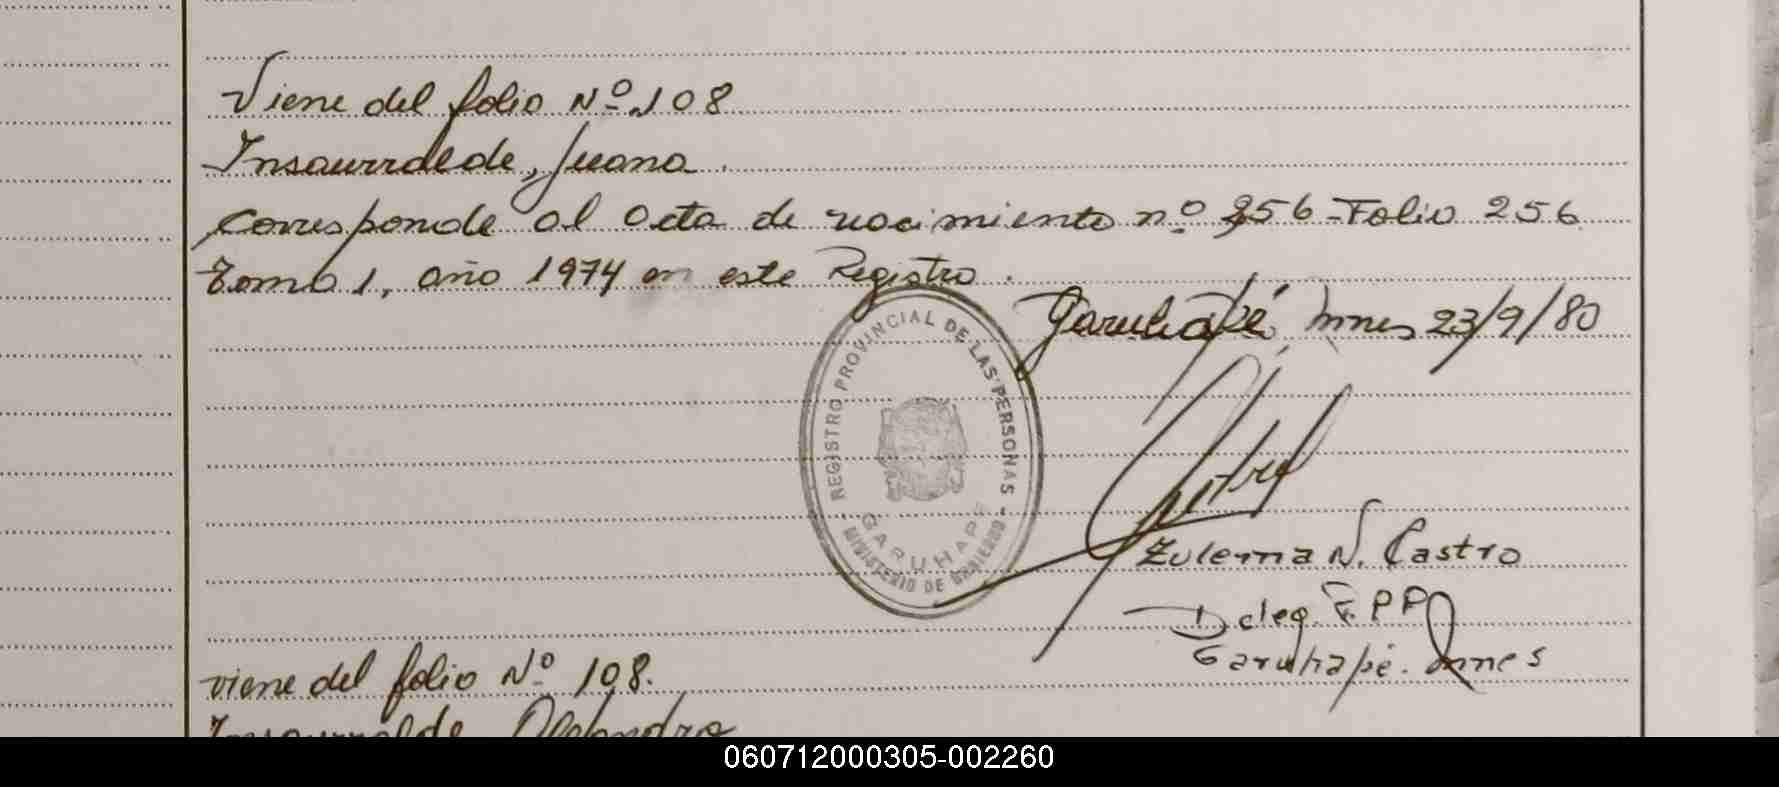 Viene del folio Nº 108
Insaurralde, Juana.
Corresponde al acta de nacimiento nº 256 - Folio 256
Tomo 1, año 1974 en este Registro.
Garuhapé, Mnes 23/9/80
REGISTRO PROVINCIAL DE LAS PERSONAS
GARUHAPE
MINISTERIO DE GOBIERNO
Castro
Zulema N. Castro
Deleg. R.P.P.
Garuhapé. Mnes
viene del folio Nº 108.
Insaurralde Alejandro
060712000305-002260